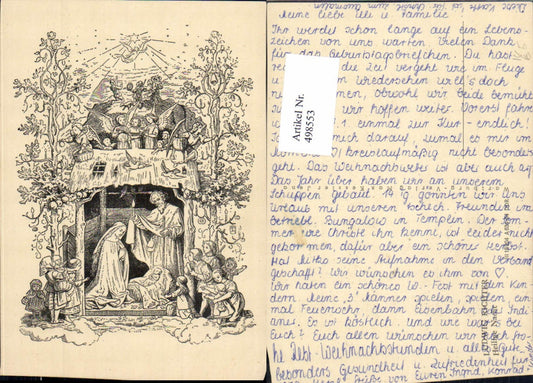 Diese Karte ist für Christl zum ausmalen
Meine liebe Uli u. Familie
Ihr werdet schon lange auf ein Lebens-
zeichen von uns warten. Vielen Dank
für das Geburtstagsbriefchen. Du hast
die Zeit vergeht wie im Fluge
u. Wiedersehen will's doch
obwohl wir beide bemüht
wir hoffen weiter. Vorerst fahre
1. einmal zur Kur - endlich!
mich darauf, zumal es mir im
kreislaufmäßig nicht besonders
geht. Das Weihnachtswetter ist aber auch
Das Jahr über haben wir an unserem
Schuppen gebaut. gönnten wir uns
Urlaub mit unseren tschech. Freunden im
betriebl. Bungalow in Templin. Der Som-
mer, wie Christl ihn kennt, ist leider nicht
gekommen, dafür aber ein schöner Herbst.
Hat Mirko seine Aufnahme in den Verband
geschafft? Wir wünschen es ihm von ♡.
Wir haben ein schönes W.-Fest mit den Kin-
dern. Meine 3 Männer spielen, spielen, ein-
mal Feuerwehr, dann Eisenbahn, u. Indi-
aner. Es ist köstlich. Und wie war es bei
Euch? Euch allen wünschen wir noch fro-
he Rest-Weihnachtsstunden u. alles Gute,
besonders Gesundheit u. Zufriedenheit für
Grüße von Euren Ingrid, Konrad
Artikel Nr.
498553
LUDWIG RICHTER
Heilige Nacht